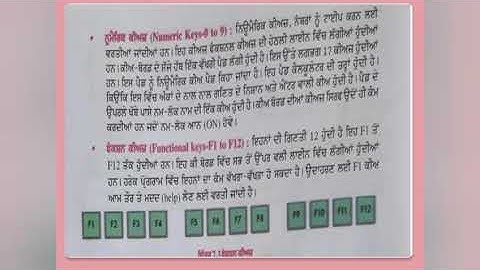 • ਨੁਮੈਰਿਕ ਕੀਅਜ਼ (Numeric Keys-0 to 9) : ਨਿਊਮੈਰਿਕ ਕੀਅਜ਼, ਨੰਬਰਾਂ ਨੂੰ ਟਾਈਪ ਕਰਨ ਲਈ
ਵਰਤੀਆਂ ਜਾਂਦੀਆਂ ਹਨ। ਇਹ ਕੀਅਜ਼ ਫੰਕਸ਼ਨਲ ਕੀਅਜ਼ ਦੀ ਹੇਠਲੀ ਲਾਈਨ ਵਿੱਚ ਲੱਗੀਆਂ ਹੁੰਦੀਆਂ
ਹਨ। ਕੀਅ-ਬੋਰਡ ਦੇ ਸੱਜੇ ਹੱਥ ਇੱਕ ਵੱਖਰੀ ਪੈਡ ਲੱਗੀ ਹੁੰਦੀ ਹੈ। ਇਸ ਉੱਤੇ ਲਗਭਗ 17 ਕੀਅਜ਼ ਹੁੰਦੀਆਂ
ਹਨ। ਇਸ ਪੈਡ ਨੂੰ ਨਿਊਮੈਰਿਕ ਕੀਅ ਪੈਡ ਕਿਹਾ ਜਾਂਦਾ ਹੈ। ਇਹ ਪੈਡ ਕੈਲਕੂਲੇਟਰ ਦੀ ਤਰ੍ਹਾਂ ਹੁੰਦੀ ਹੈ।
ਕਿਉਂਕਿ ਇਸ ਵਿੱਚ ਅੰਕਾਂ ਦੇ ਨਾਲ ਨਾਲ ਗਣਿਤ ਦੇ ਨਿਸ਼ਾਨ ਅਤੇ ਐਂਟਰ ਵਾਲੀ ਕੀਅ ਹੁੰਦੀ ਹੈ। ਪੈਡ ਦੇ
ਉਪਰਲੇ ਖੱਬੇ ਪਾਸੇ ਨਮ-ਲੋਕ ਨਾਮ ਦੀ ਇੱਕ ਕੀਅ ਹੁੰਦੀ ਹੈ। ਕੀਅ ਬੋਰਡ ਦੀਆਂ ਕੀਅਜ਼ ਸਿਰਫ ਉਦੋਂ ਹੀ ਕੰਮ
ਕਰਦੀਆਂ ਹਨ ਜਦੋਂ ਨਮ-ਲੋਕ ਆਨ (ON) ਹੋਵੇ।
• ਫੰਕਸ਼ਨ ਕੀਅਜ਼ (Functional keys-F1 to F12) : ਇਹਨਾਂ ਦੀ ਗਿਣਤੀ 12 ਹੁੰਦੀ ਹੈ ਇਹ F1 ਤੋਂ
F12 ਤੱਕ ਹੁੰਦੀਆਂ ਹਨ। ਇਹ ਕੀ ਬੋਰਡ ਵਿੱਚ ਸਭ ਤੋਂ ਉੱਪਰ ਵਲੀ ਲਾਈਨ ਵਿੱਚ ਲੱਗੀਆਂ ਹੁੰਦੀਆਂ
ਹਨ। ਹਰੇਕ ਪ੍ਰੋਗਰਾਮ ਵਿੱਚ ਇਹਨਾਂ ਦਾ ਕੰਮ ਵੱਖਰਾ-ਵੱਖਰਾ ਹੋ ਸਕਦਾ ਹੈ। ਉਦਾਹਰਣ ਲਈ F1 ਕੀਅ
ਆਮ ਤੌਰ ਤੇ ਮਦਦ (help) ਲੈਣ ਲਈ ਵਰਤੀ ਜਾਂਦੀ ਹੈ।
F1 F2 F3 F4 F5 F6 F7 F8 F9 F10 F11 F12
ਫੰਕਸ਼ਨ ਕੀਅਜ਼